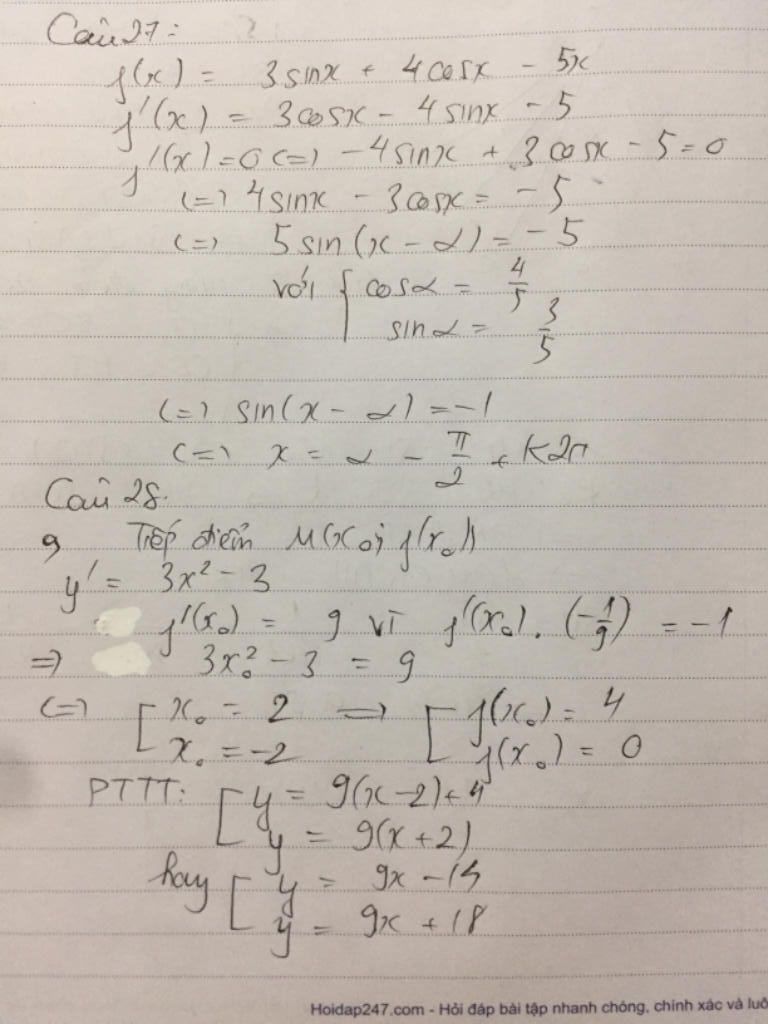 Câu 27:
f(x) = 3sinx + 4cosx - 5x
f'(x) = 3cosx - 4sinx - 5
f'(x) = 0 (=) -4sinx + 3cosx - 5 = 0
(=) 4sinx - 3cosx = -5
(=) 5sin(x - α) = -5
với { cosα = 4/5
sinα = 3/5
(=) sin(x - α) = -1
(=) x = α - π/2 + k2π
Câu 28.
Tiếp điểm M(x₀; f(x₀))
y' = 3x² - 3
f'(x₀) = 9 vì f'(x₀). (-1/9) = -1
=> 3x₀² - 3 = 9
(=) [ x₀ = 2 => [ f(x₀) = 4
x₀ = -2 f(x₀) = 0
PTTT: [ y = 9(x-2)+4
y = 9(x+2)
hay [ y = 9x - 14
y = 9x + 18
Hoidap247.com - Hỏi đáp bài tập nhanh chóng, chính xác và luô